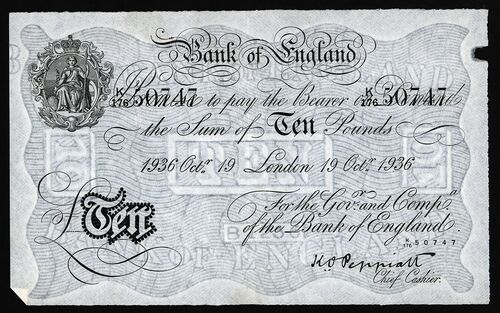 Bank of England
K/176 50747 K/176 50747
Promise to pay the Bearer on Demand
the Sum of Ten Pounds
1936 Octr. 19 London 19 Octr. 1936
For the Govr. and Compa.
of the Bank of England.
K/176 50747
Ten
K.O. Peppiatt
Chief Cashier.